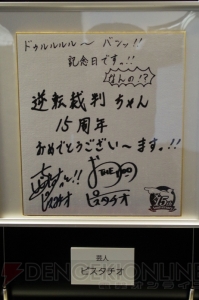 ドゥルルルル〜 バンッ!!
記念日です。!!
なんの!?
逆転裁判ちゃん
15周年
おめでとうございい〜ます。!!
ピスタチオ
THE
ピスタチオ
15th
芸人
ピスタチオ
DENGEKIONLINE